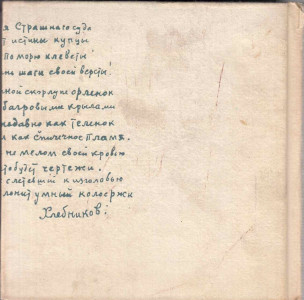 я Страшнаго судо
т истины купцы
по морю клеветы
шаги своей версты.
ной скорлупе орленок
багровыми крылами
недавно как теленок
и как спичечное пламя.
не мелом своей кровью
чертежи.
слетевший к изголовью
умный колосржи
Хлебников.